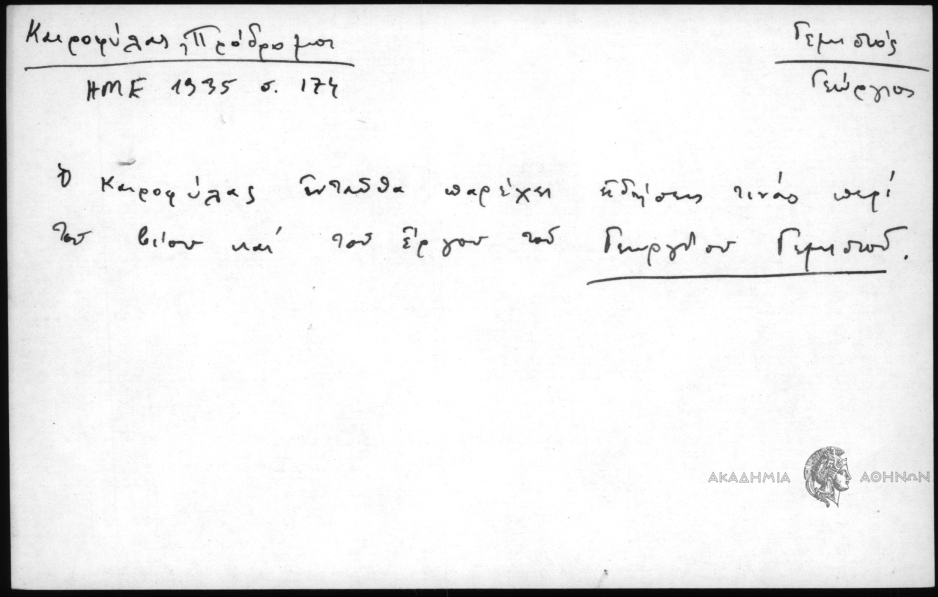 Καιροφύλας, Πρόδρομοι
ΗΜΕ 1935 σ. 174
Γεμιστός
Γεώργιος
Ὁ Καιροφύλας ἐνταῦθα παρέχει εἰδήσεις τινάς περί
τοῦ βίου καί τοῦ ἔργου τοῦ Γεωργίου Γεμιστοῦ.
ΑΚΑΔΗΜΙΑ ΑΘΗΝΩΝ